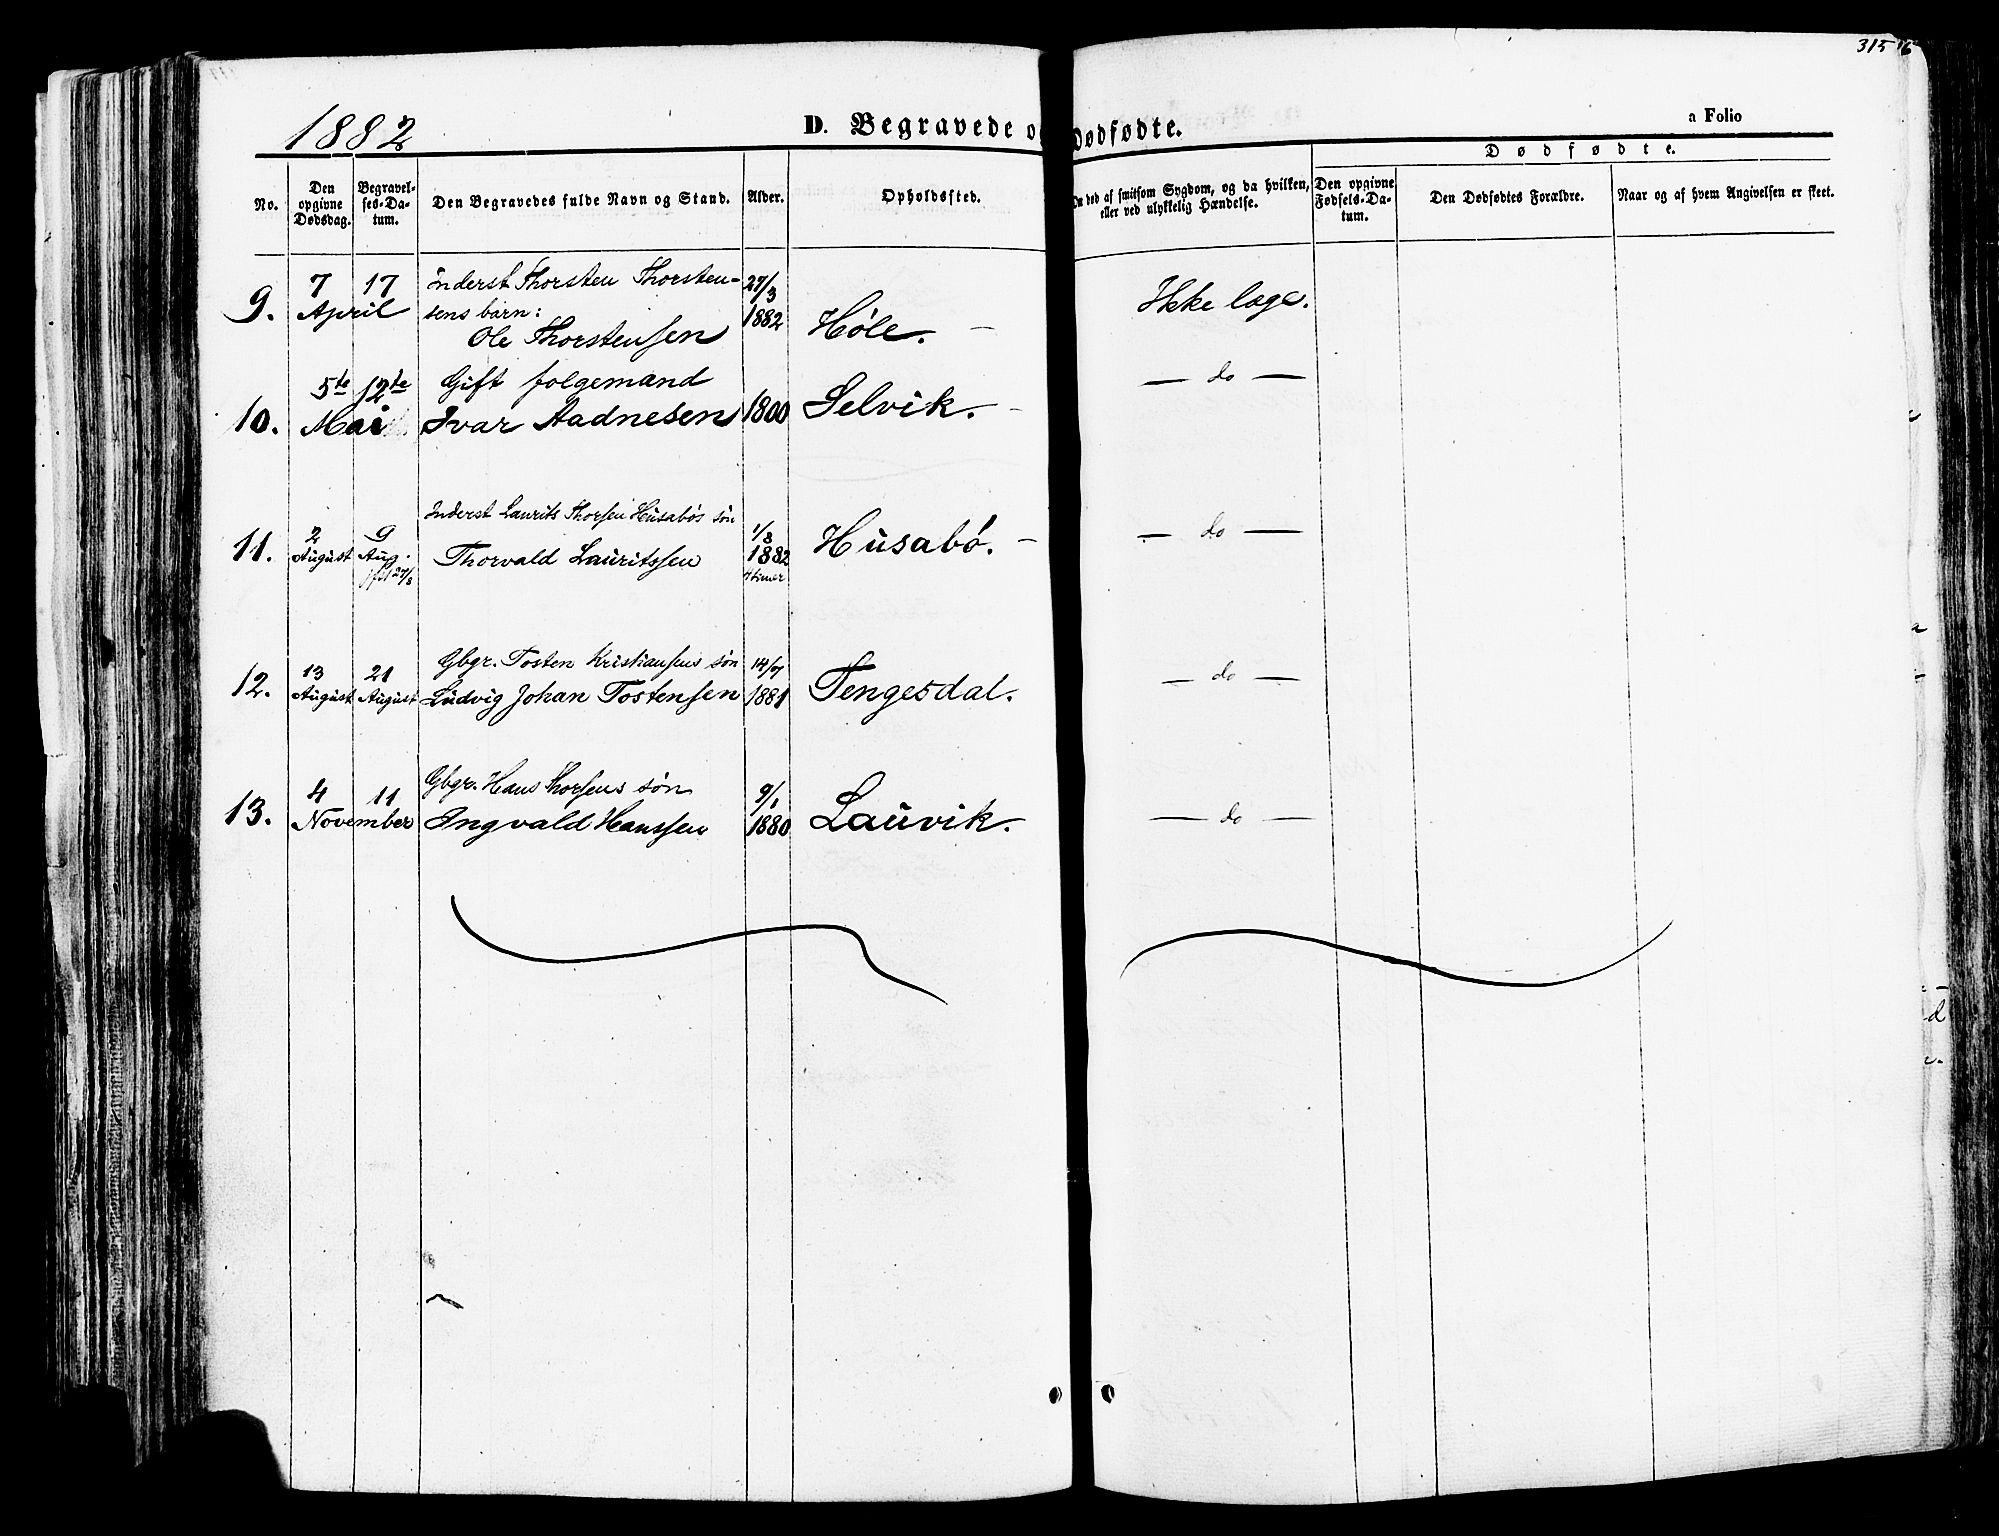 315
1882
D. Begravede og Dødfødte.
a Folio
Dødfødte.
No.
Den opgivne Dødsdag.
Begravelses-Datum.
Den Begravedes fulde Navn og Stand.
Alder.
Opholdssted.
Om død af smitsom Sygdom, og da hvilken, eller ved ulykkelig Hændelse.
Den opgivne Fødsels-Datum.
Den Dødfødtes Forældre.
Naar og af hvem Angivelsen er skeet.
7 17 Inderst Thorsten Thorsten- 27/3
9. April sens barn: 1882 Ikke læge.
Ole Thorstensen Høle. —
5te 12te Gift folgemand — do —
10. Mai Ivar Aadnesen 1800 Selvik. -
Inderst Laurits Thorsen Husabøs søn 1/8
2 9 — do —
11. August Aug. Thorvald Lauritssen 1882 Husabø. -
jfst 27/8 4 timer
13 21 Gbgr. Tosten Kristiansens søn 14/7 — do —
12. August August Ludvig Johan Tostensen 1881 Tengesdal.
4 11 Gbgr. Hans Thorsens søn 9/1
13. November Ingvald Hanssen 1880 Lauvik. — do —